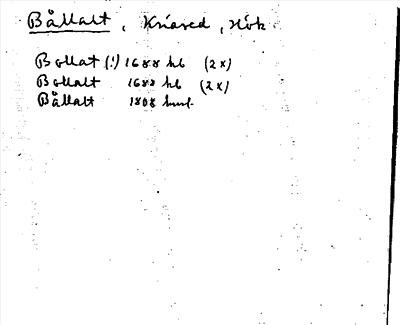 Bållalt, Knäred, Hök.
Bollat (!) 1688 kb (2x)
Bollalt 1688 kb (2x)
Bållalt 1808 huvf.